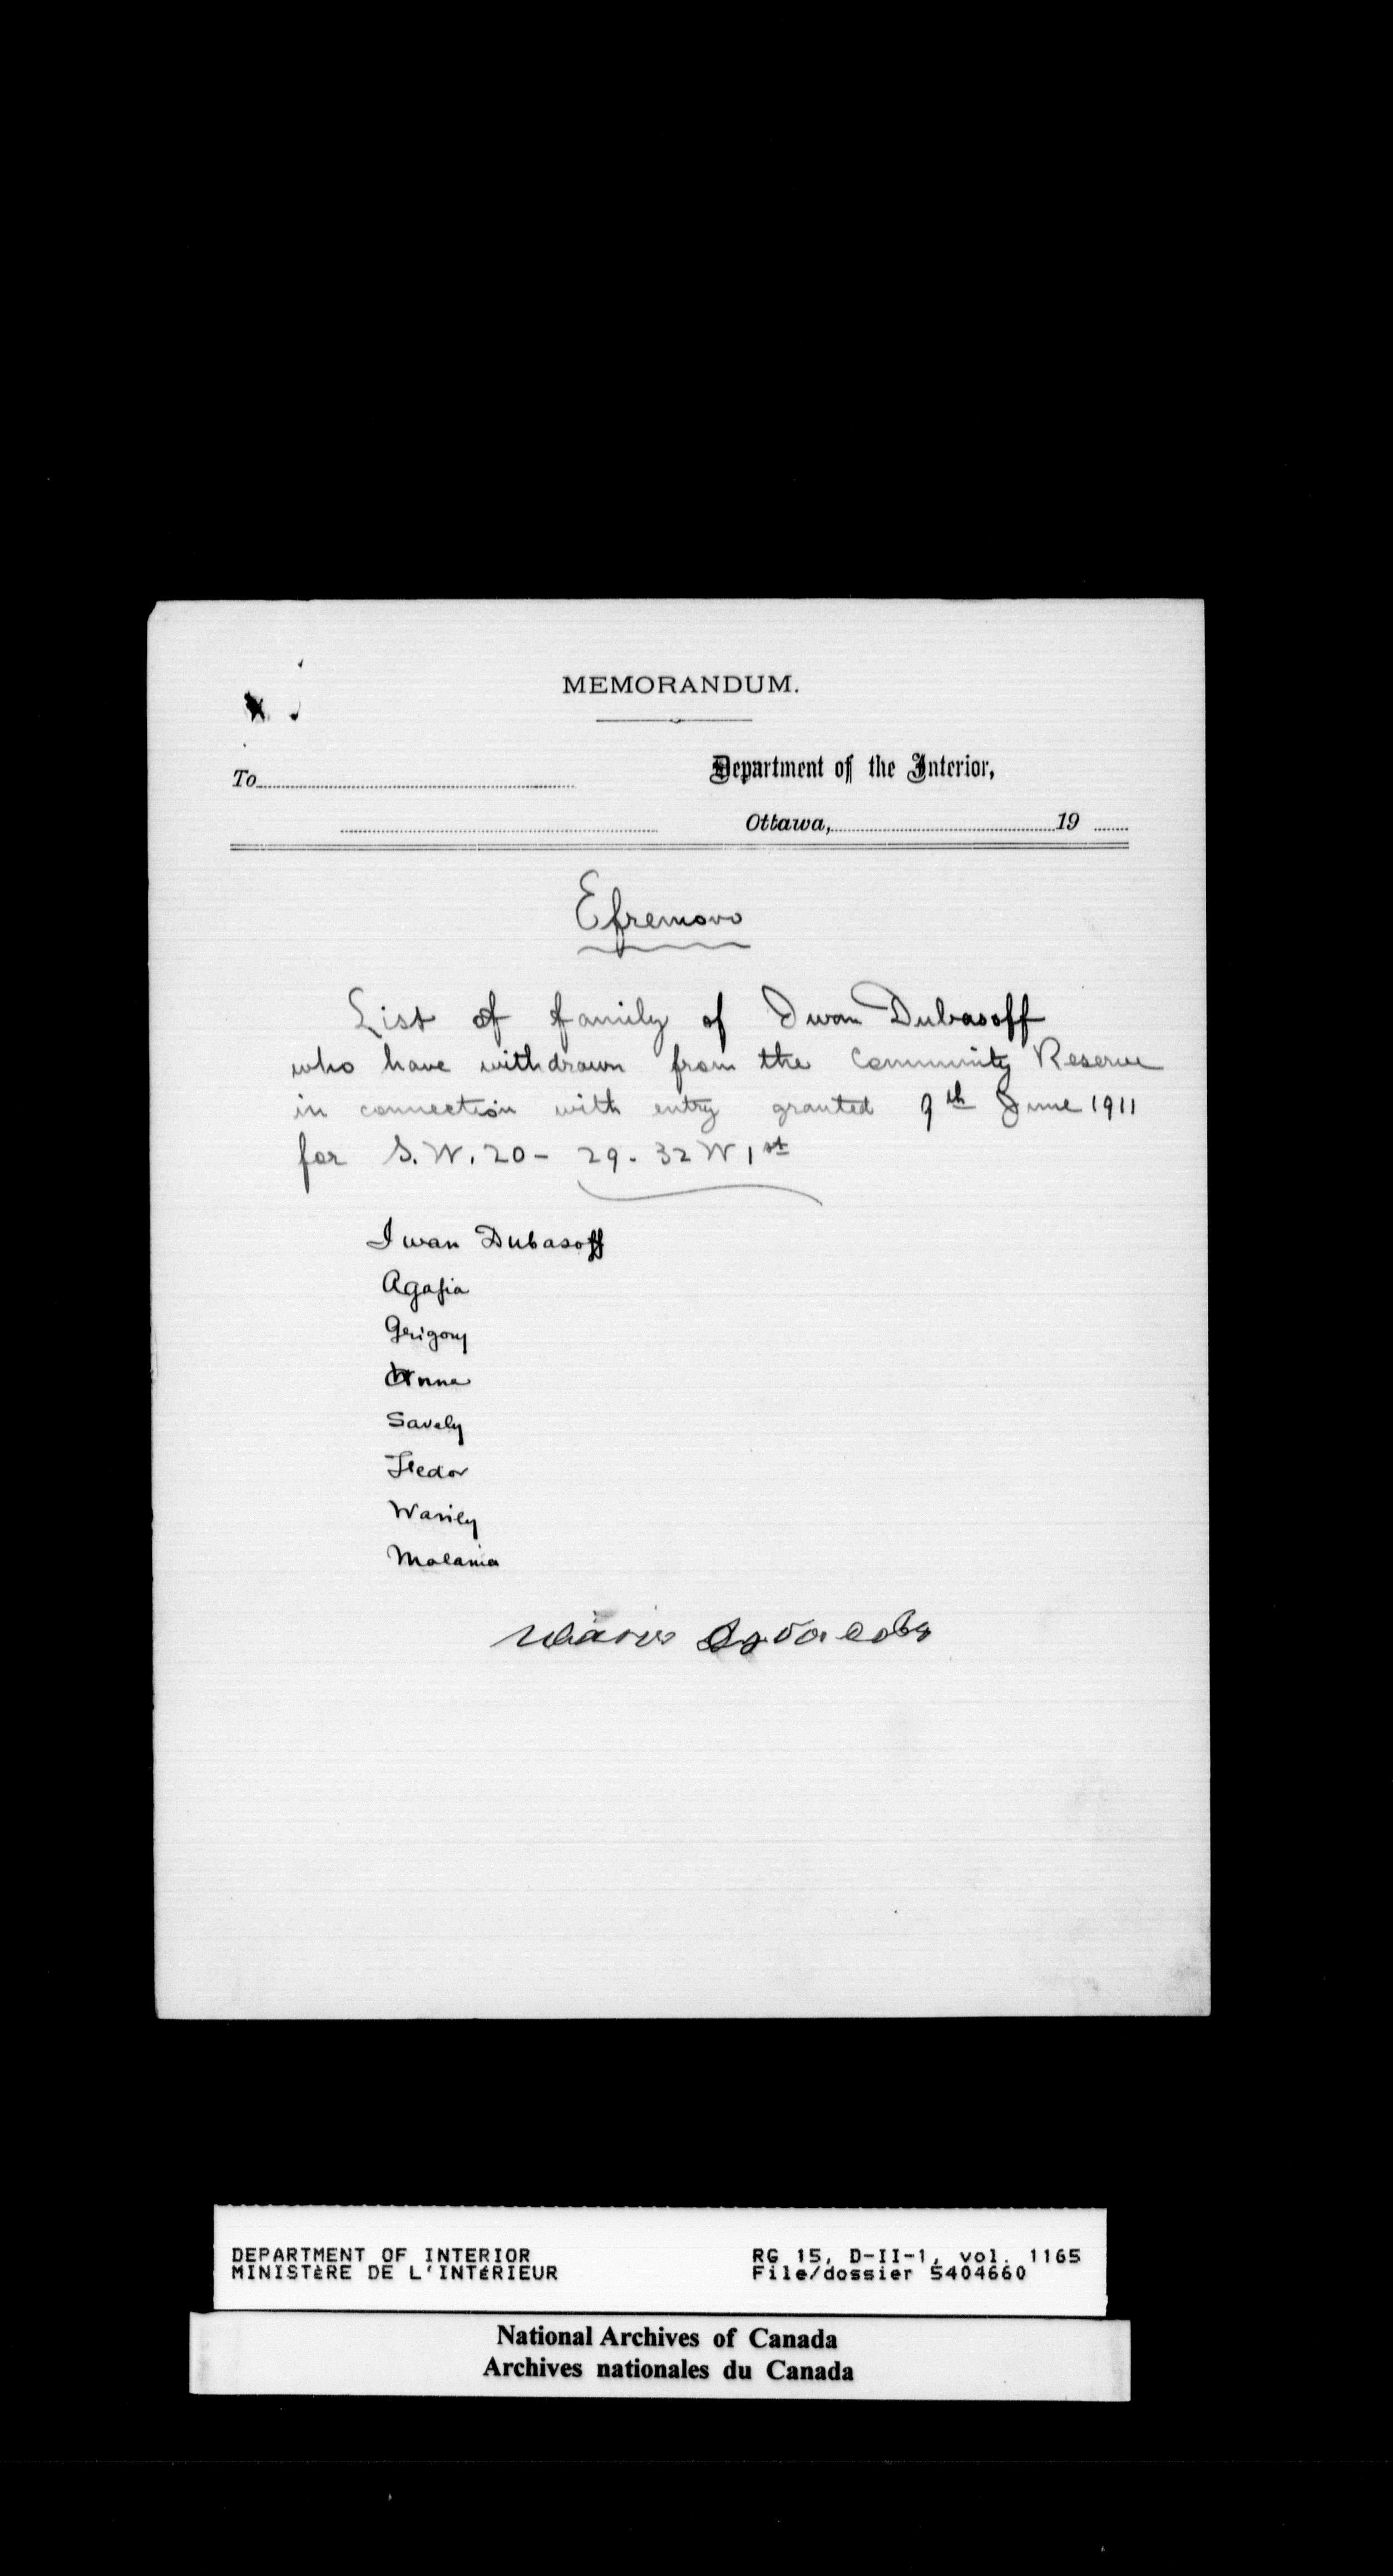 MEMORANDUM.
To
Department of the Interior,
Ottawa, 19
Efremovo
List of family of Iwan Dubasoff
who have withdrawn from the Community Reserve
in connection with entry granted 9th June 1911
for S.W. 20 - 29 - 32 W 1st
Iwan Dubasoff
Agafia
Grigory
Anna
Savely
Fedor
Wasily
Malania
DEPARTMENT OF INTERIOR
MINISTÈRE DE L'INTÉRIEUR
RG 15, D-II-1, vol. 1165
File/dossier 5404660
National Archives of Canada
Archives nationales du Canada